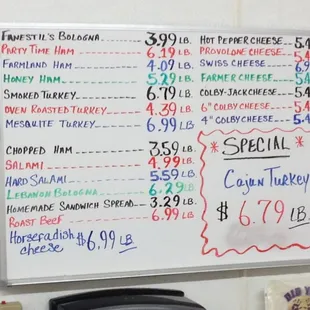 Fanestil's Bologna 3.99 LB.
Party Time Ham 6.19 LB.
Farmland Ham 4.09 LB.
Honey Ham 5.29 LB.
Smoked Turkey 6.79 LB.
Oven Roasted Turkey 4.39 LB.
Mesquite Turkey 6.99 LB.
Chopped Ham 3.59 LB.
Salami 4.99 LB.
Hard Salami 5.59 LB.
Lebanon Bologna 6.29 LB.
Homemade Sandwich Spread 3.29 LB.
Roast Beef 6.99 LB.
Horseradish cheese $6.99 LB
Hot Pepper Cheese
Provolone Cheese
Swiss Cheese
Farmer Cheese
Colby-Jack Cheese
6" Colby Cheese
4" Colby Cheese
* Special *
Cajun Turkey
$6.79 LB